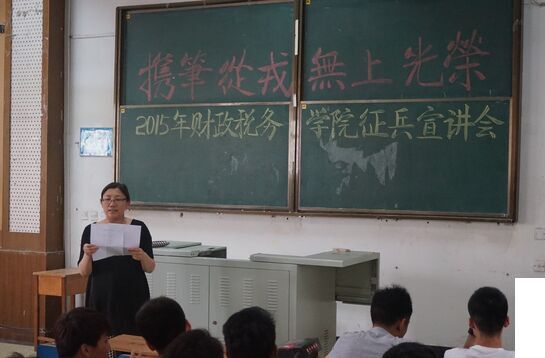 攜筆從戎 無上光榮
2015年财政税务 学院征兵宣讲会